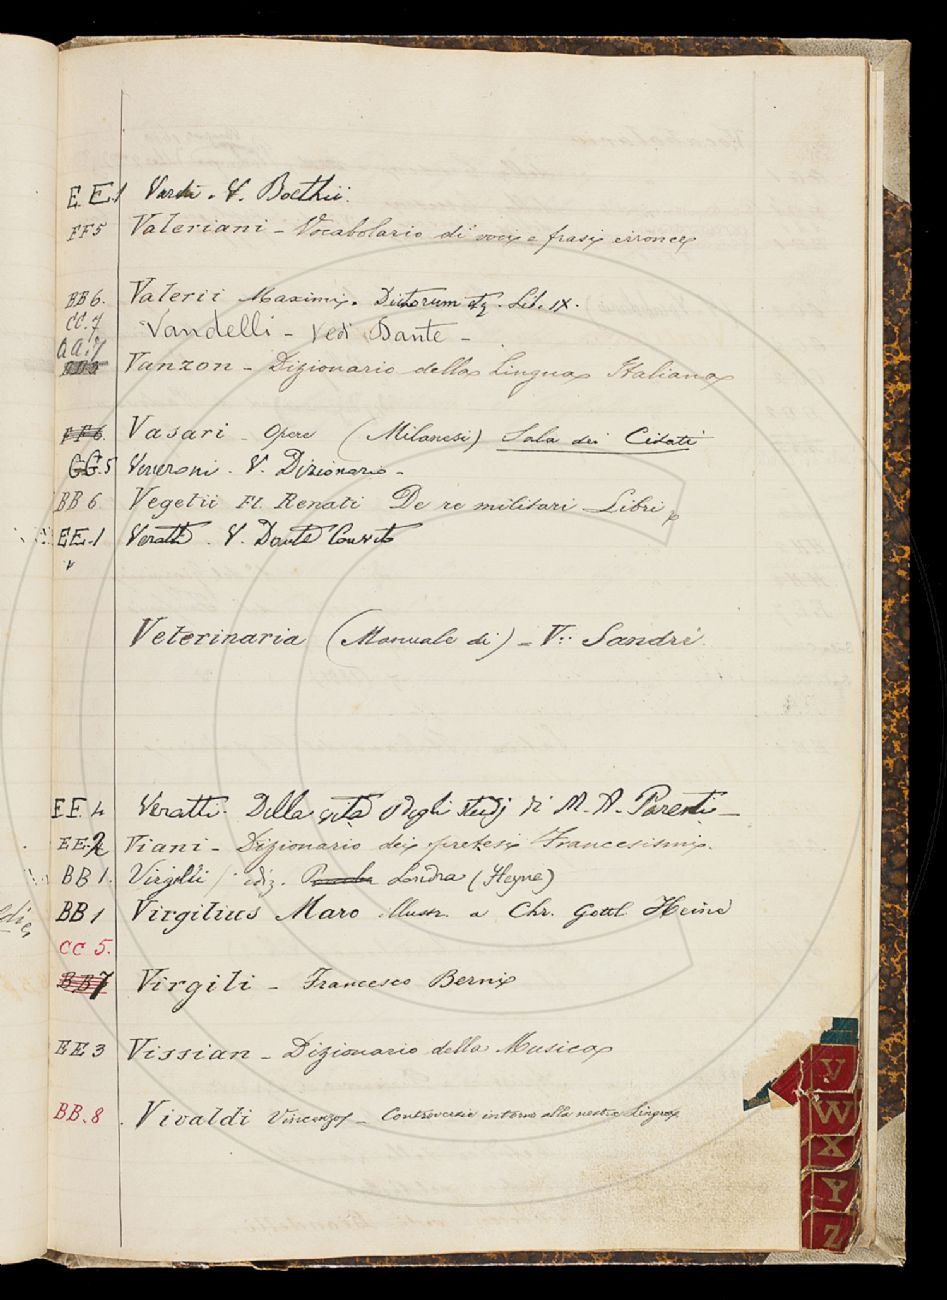 E.E.1 Varchi. V. Boethii.
FF5 Valeriani - Vocabolario di voci e frasi erronee
BB6. Valerii Maximi. Dictorum etc. Lib. IX.
CC.7 Vandelli - Vedi Dante -
AA.7
Vanzon - Dizionario della Lingua Italiana
FF6. Vasari - Opere (Milanesi) Sala dei Citati
GG.5 V. Dizionario -
BB6. Vegetii Fl. Renati De re militari Libri
EE.1 Veratti. V. Dante Convito
v
Veterinaria (Manuale di) - V: Sandri.
EE.4 Veratti. Della vita e degli studj di M. A. Parenti -
EE.2 Viani - Dizionario dei pretesi Francesismi.
BB1. Virgilii ediz. Londra (Heyne)
BB1 Virgilius Maro illustr. a Chr. Gottl Heine
CC 5.
BB7 Virgili - Francesco Berni
EE3 Vissian - Dizionario della Musica
BB.8 Vivaldi Vincenzo - Controversie intorno alla nostra Lingua
V
W
X
Y
Z